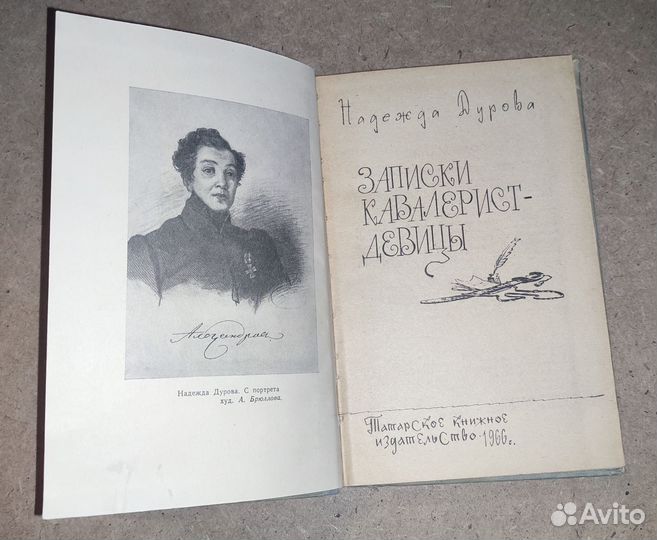 Александров.
Надежда Дурова. С портрета
худ. А. Брюллова.
Надежда Дурова
ЗАПИСКИ
КАВАЛЕРИСТ-
ДЕВИЦЫ
Татарское книжное
издательство · 1966 г.
Avito